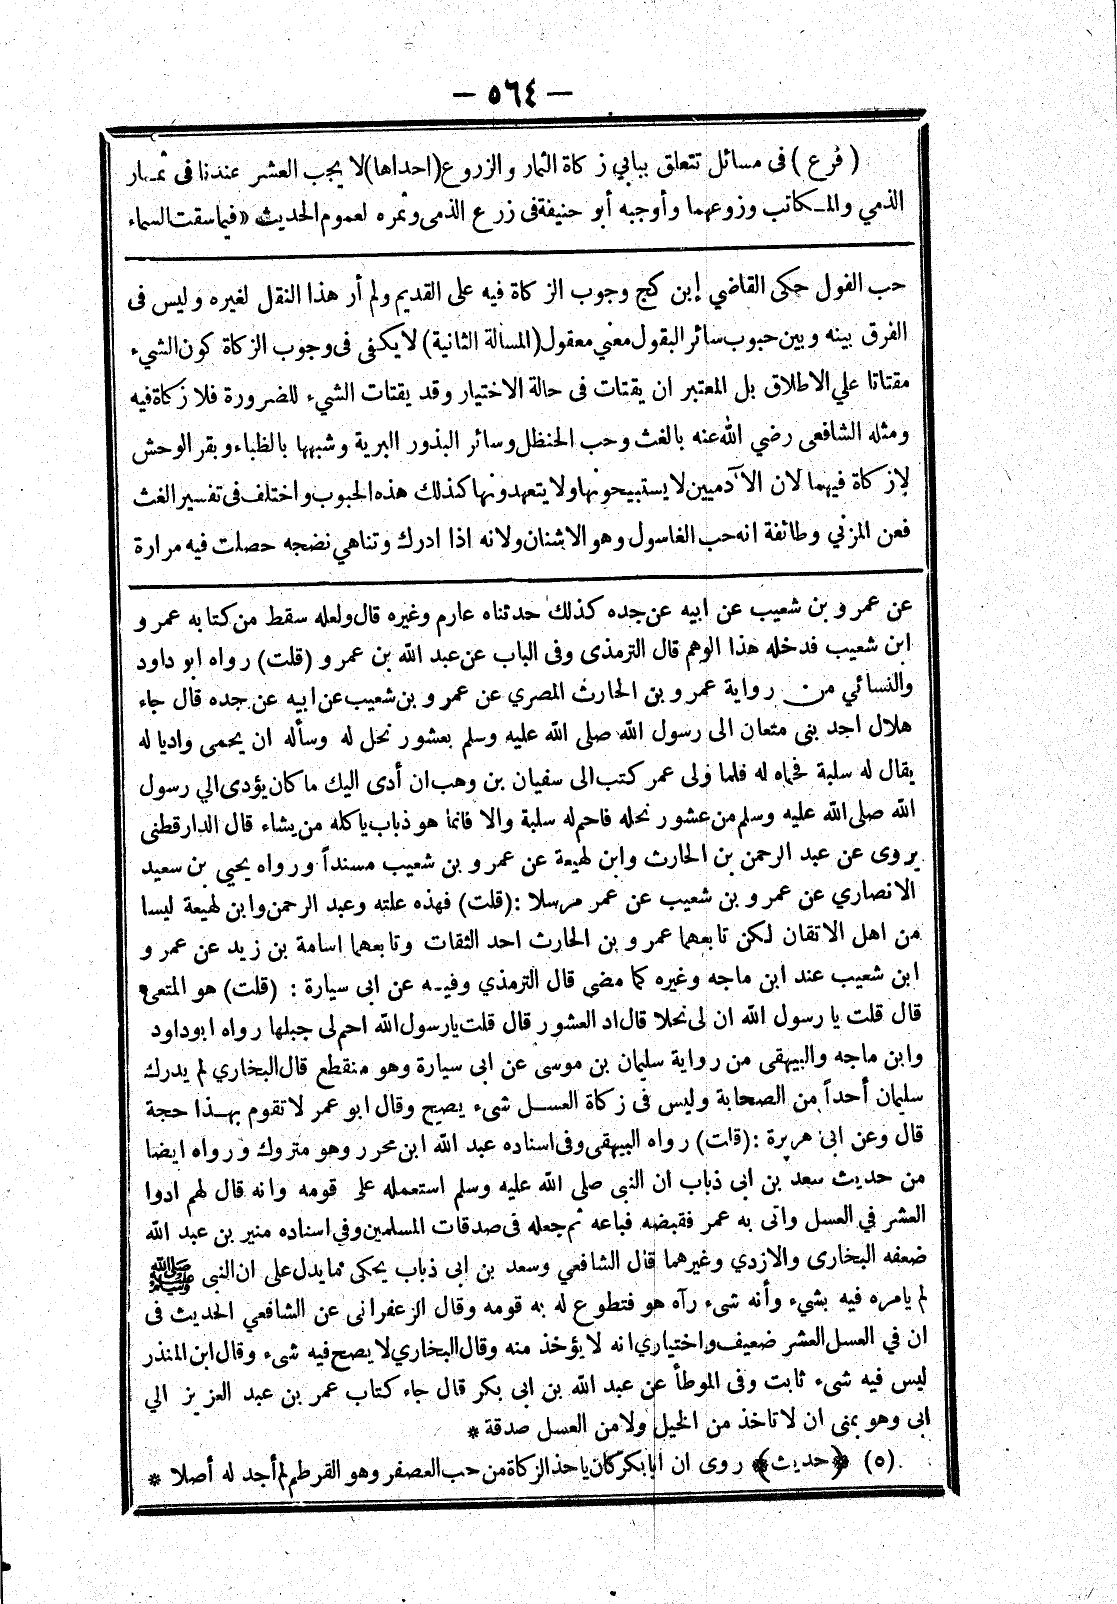 — ٥٦٤ —
( فرع ) فى مسائل تتعلق ببابي زكاة الثمار والزروع (احداها) لا يجب العشر عندنا فى ثمار
الذمي والمكاتب وزروعهما وأوجبه أبو حنيفة فى زرع الذمى وثمره لعموم الحديث « فيما سقت السماء
حب الفول حكى القاضي إبن كج وجوب الزكاة فيه على القديم ولم أر هذا النقل لغيره وليس فى
الفرق بينه وبين حبوب سائر البقول معني معقول (المسألة الثانية) لا يكفى فى وجوب الزكاة كون الشيء
مقتاتا علي الاطلاق بل المعتبر ان يقتات فى حالة الاختيار وقد يقتات الشيء للضرورة فلا زكاة فيه
ومثله الشافعى رضي الله عنه بالغث وحب الحنظل وسائر البذور البرية وشبهها بالظباء وبقر الوحش
لا زكاة فيهما لان الآدميين لا يستبيحونها ولا يتعهدونها كذلك هذه الحبوب واختلف فى تفسير الغث
فعن المزني وطائفة انه حب الغاسول وهو الاشنان ولانه اذا ادرك وتناهي نضجه حصلت فيه مرارة
عن عمرو بن شعيب عن ابيه عن جده كذلك حدثناه عارم وغيره قال ولعله سقط من كتابه عمرو
ابن شعيب فدخله هذا الوهم قال الترمذى وفى الباب عن عبد الله بن عمرو (قلت) رواه ابو داود
والنسائي من رواية عمرو بن الحارث المصري عن عمرو بن شعيب عن ابيه عن جده قال جاء
هلال احد بنى متعان الى رسول الله صلى الله عليه وسلم بعشور نحل له وسأله ان يحمى واديا له
يقال له سلبة فحماه له فلما ولى عمر كتب الى سفيان بن وهب ان أدى اليك ما كان يؤدى الي رسول
الله صلى الله عليه وسلم من عشور نحله فاحم له سلبة والا فانما هو ذباب يا كله من يشاء قال الدارقطنى
يروى عن عبد الرحمن بن الحارث وابن لهيعة عن عمرو بن شعيب مسنداً ورواه يحيي بن سعيد
الانصاري عن عمرو بن شعيب عن عمر مرسلا : (قلت) فهذه علته وعبد الرحمن وابن لهيعة ليسا
من اهل الاتقان لكن تابعهما عمرو بن الحارث احد الثقات وتابعهما اسامة بن زيد عن عمرو
ابن شعيب عند ابن ماجه وغيره كما مضي قال الترمذي وفيه عن ابى سيارة : (قلت) هو المتعي
قال قلت يا رسول الله ان لى نحلا قال اد العشور قال قلت يارسول الله احم لى جبلها رواه ابوداود
وابن ماجه والبيهقى من رواية سليمان بن موسى عن ابى سيارة وهو منقطع قال البخاري لم يدرك
سليمان أحداً من الصحابة وليس فى زكاة العسل شىء يصح وقال ابو عمر لا تقوم بهذا حجة
قال وعن ابى هريرة : (قلت) رواه البيهقى وفى اسناده عبد الله ابن محرر وهو متروك ورواه ايضا
من حديث سعد بن ابى ذباب ان النبى صلى الله عليه وسلم استعمله على قومه وانه قال لهم ادوا
العشر في العسل واتى به عمر فقبضه فباعه ثم جعله فى صدقات المسلمين وفي اسناده منير بن عبد الله
ضعفه البخارى والازدي وغيرهما قال الشافعي وسعد بن ابى ذباب يحكى مما يدل على ان النبى ﷺ
لم يامره فيه بشيء وأنه شىء رآه هو فتطوع له به قومه وقال الزعفرانى عن الشافعي الحديث فى
ان في العسل العشر ضعيف واختياري انه لا يؤخذ منه وقال البخاري لا يصح فيه شىء وقال ابن المنذر
ليس فيه شىء ثابت وفى الموطأ عن عبد الله بن ابى بكر قال جاء كتاب عمر بن عبد العزيز الي
ابى وهو بمنى ان لا تاخذ من الخيل ولا من العسل صدقة *
(٥) ﴿حديث﴾ روى ان ابا بكر كان ياخذ الزكاة من حب العصفر وهو القرطم لم أجد له أصلا *